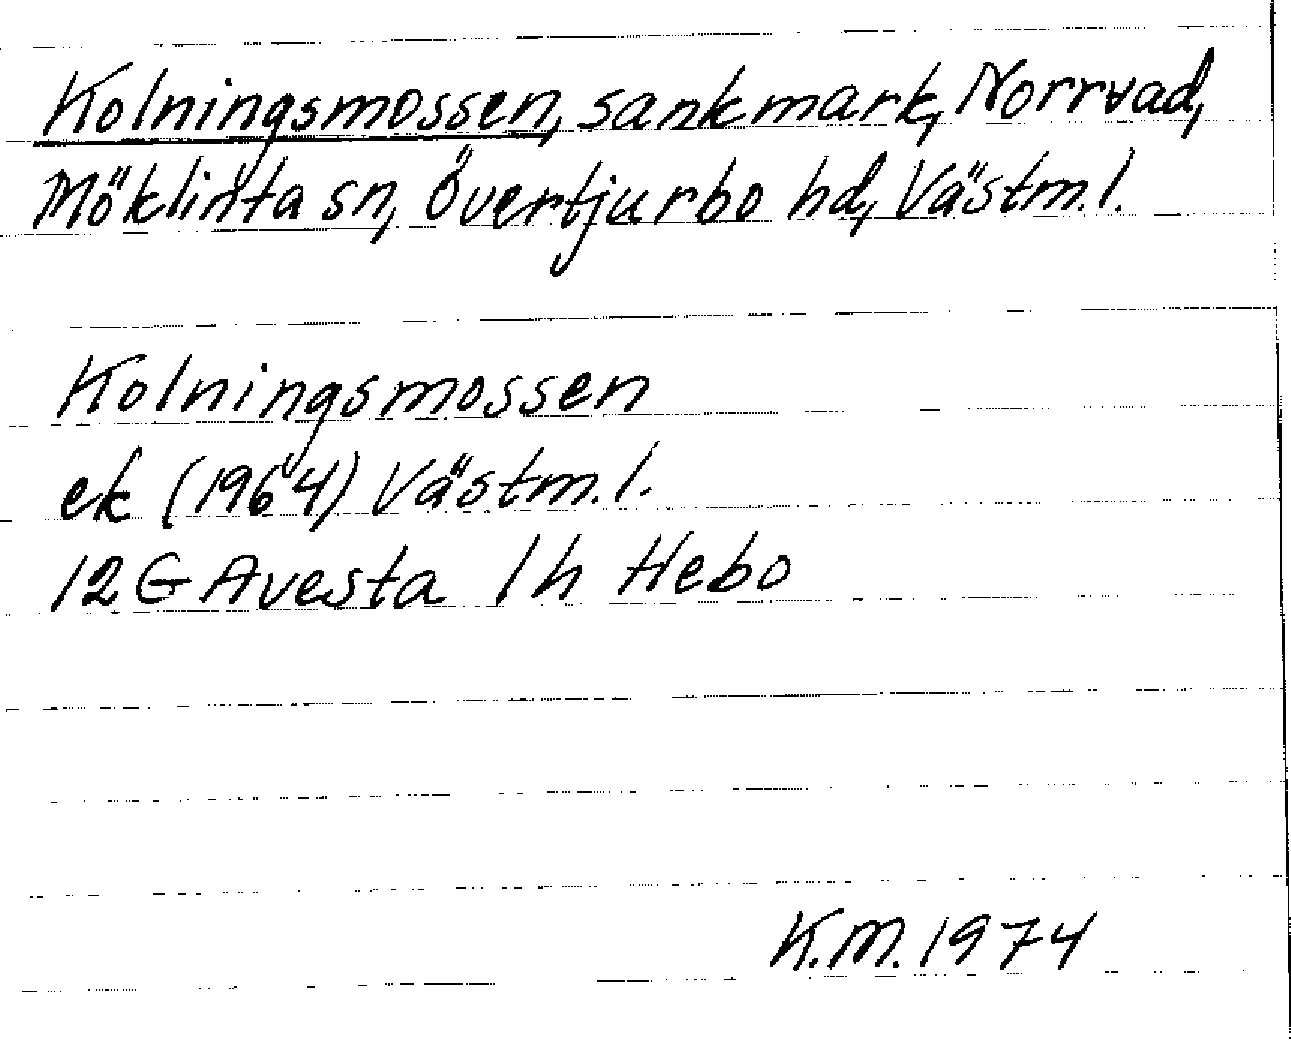 Kolningsmossen, sankmark, Norrvad,
Möklinta sn, Övertjurbo hd, Västm.l.
Kolningsmossen
ek (1964) Västm.l.
12 G Avesta 1h Hebo
K.M. 1974